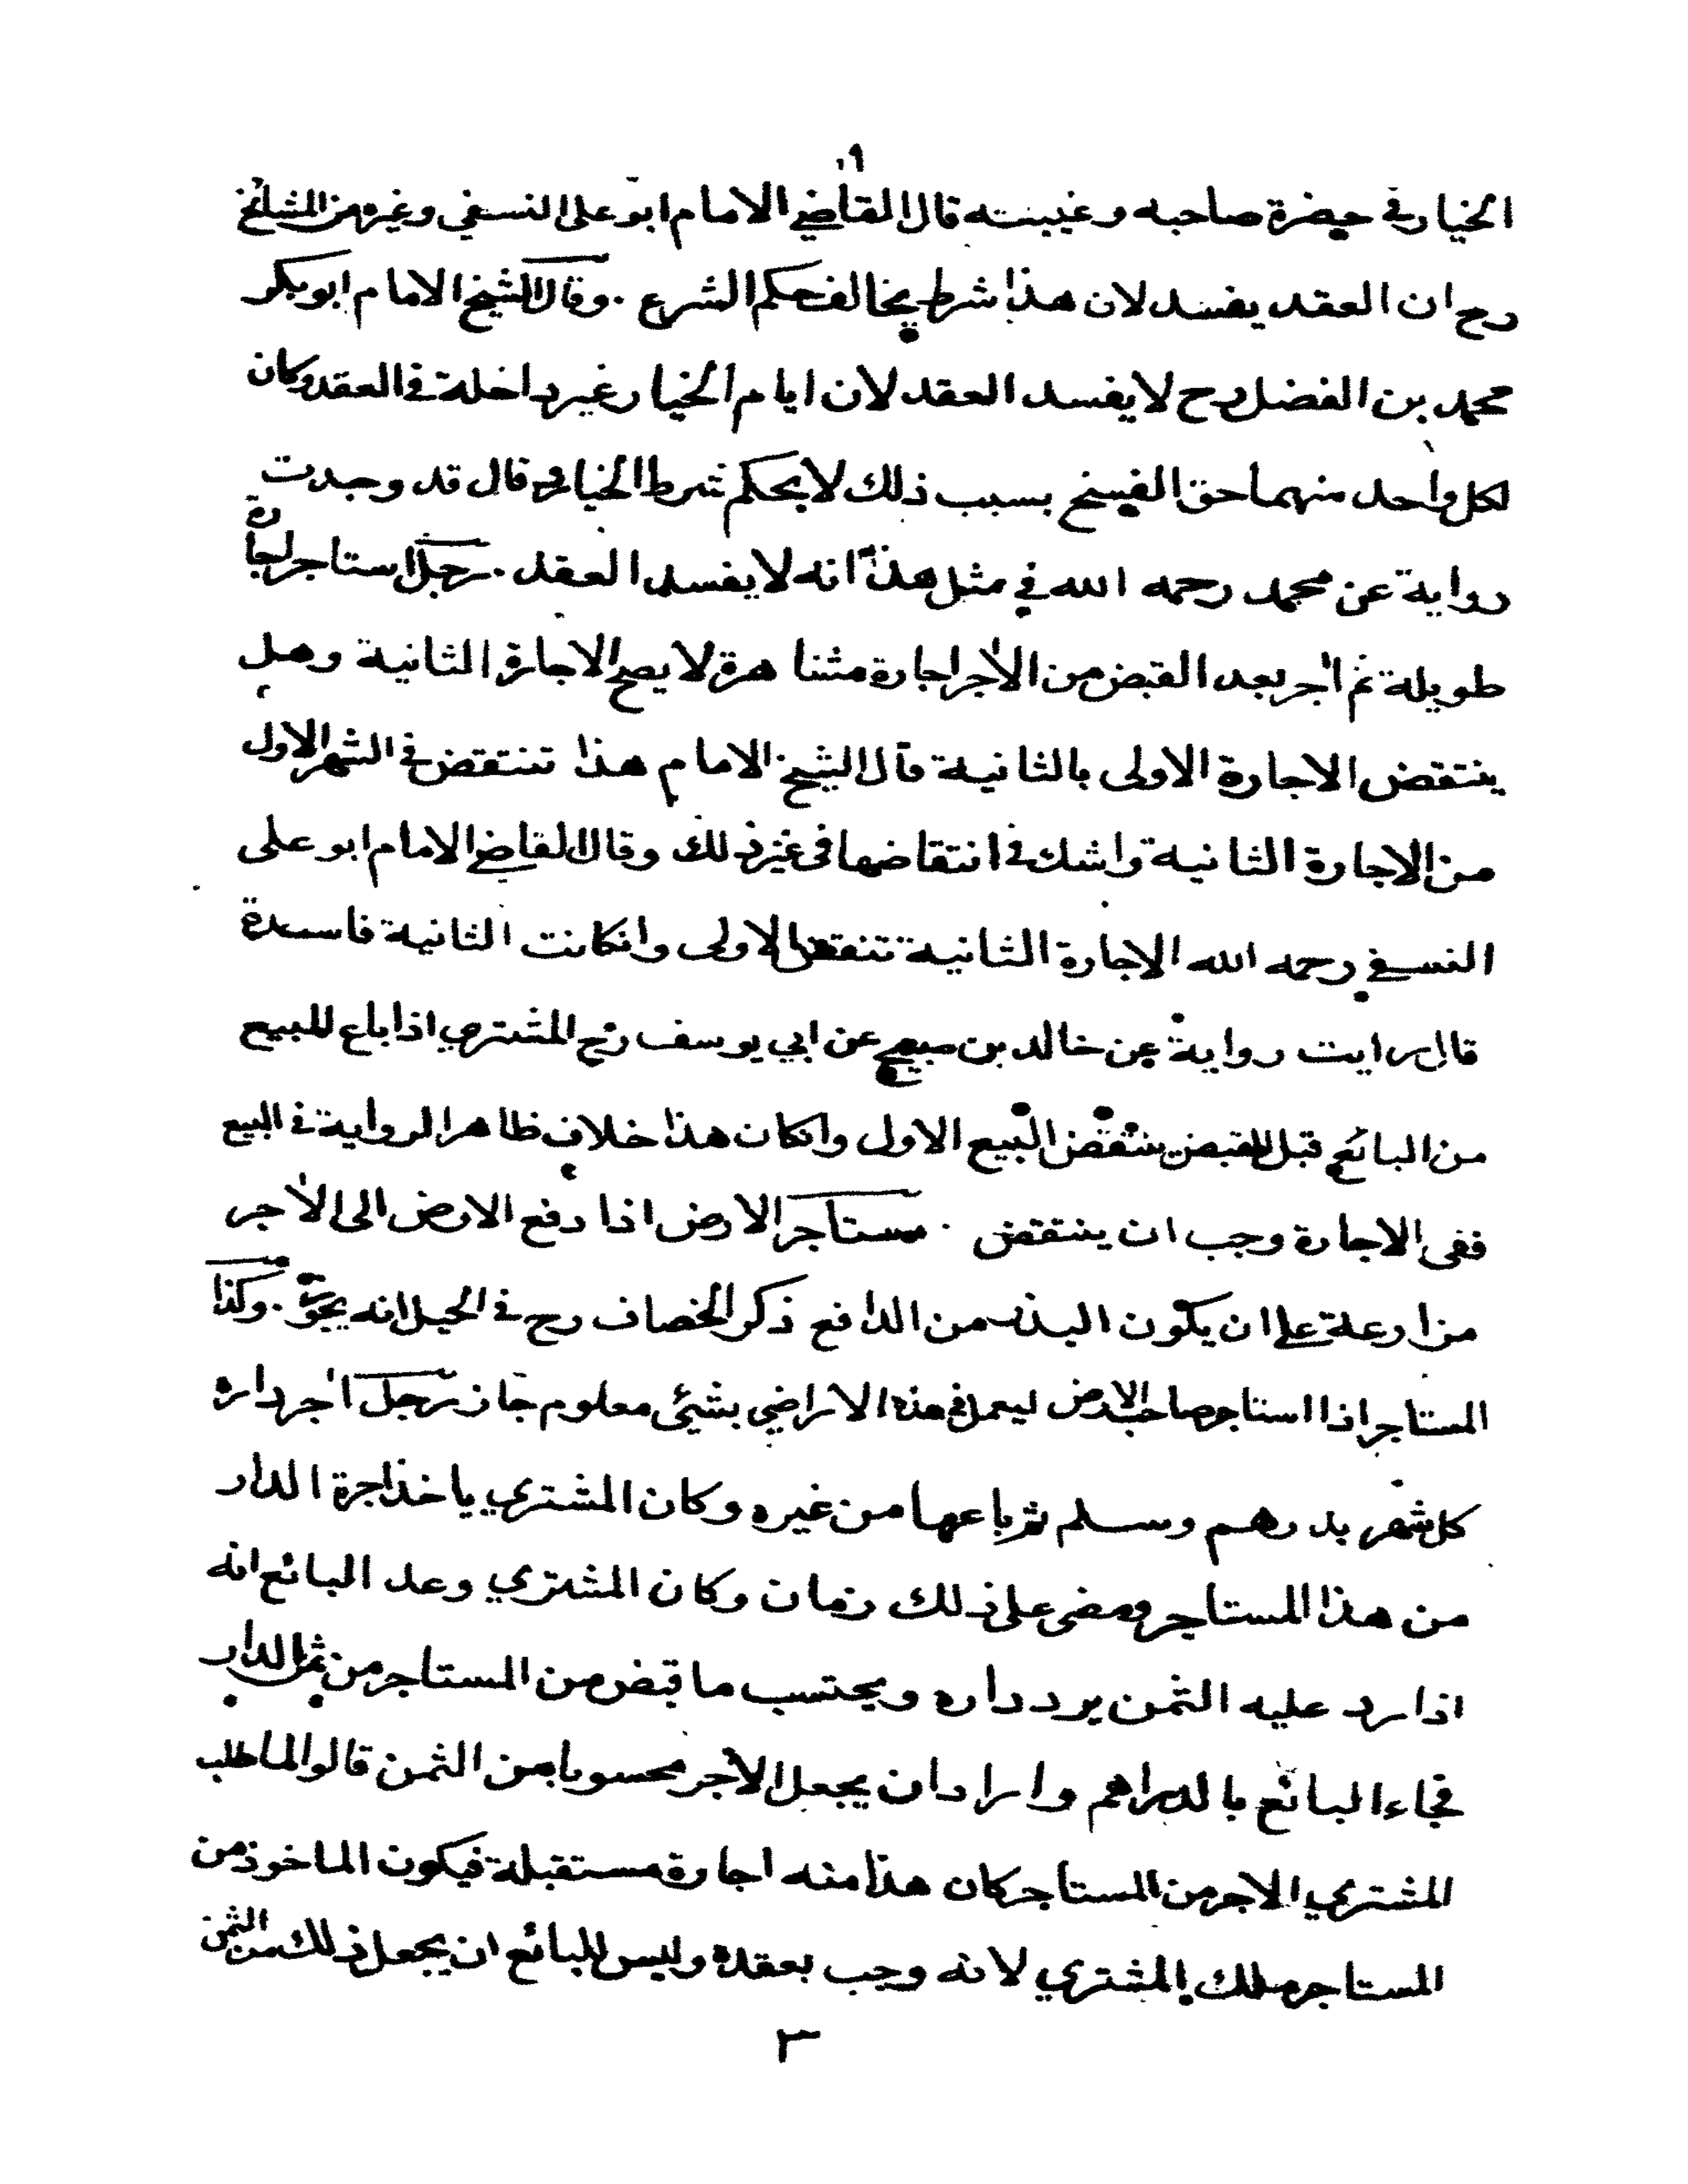 ٩
الخيار في حضرة صاحبه وغيبته قال القاضي الامام ابو على النسفي وغيره من المشائخ
رح ان العقد يفسد لان هذا شرط يخالف حكم الشرع . وقال الشيخ الامام ابو بكر
محمد بن الفضل رح لا يفسد العقد لان ايام الخيار غير داخلة في العقد وكان
لكل واحد منهما حق الفسخ بسبب ذلك لا بحكم شرط الخيار قال قد وجدت
رواية عن محمد رحمه الله في مثل هذا انه لا يفسد العقد . رجل استاجر اجارة
طويلة ثم اجر بعد القبض من الاجر اجارة مشاهرة لا يصح الاجارة الثانية وهل
ينتقض الاجارة الاولى بالثانية قال الشيخ الامام هذا تنتقض في الشهر الاول
من الاجارة الثانية واشك في انتقاضها في غير ذلك وقال القاضي الامام ابو على
النسفي رحمه الله الاجارة الثانية تنقض الاولى وانكانت الثانية فاسدة
قال رايت رواية عن خالد بن صبيح عن ابي يوسف رح المشتري اذا باع المبيع
من البائع قبل القبض ينتقض البيع الاول وانكان هذا خلاف ظاهر الرواية في البيع
ففي الاجارة وجب ان ينتقض . مستاجر الارض اذا دفع الارض الى الاجر
مزارعة على ان يكون البذر من الدافع ذكر الخصاف رح في الحيل انه يجوز . وكذا
المستاجر اذا استاجر صاحب الارض ليعمل في هذه الاراضي بشيئ معلوم جاز رجل اجر داره
كل شهر بدرهم وسلم ثم باعها من غيره وكان المشتري ياخذ اجرة الدار
من هذا المستاجر ومضى على ذلك زمان وكان المشتري وعد البائع انه
اذا رد عليه الثمن يرد داره ويحتسب ما قبض من المستاجر من ثمن الدار
فجاء البائع بالدراهم واراد ان يجعل الاجر محسوبا من الثمن قالوا لما طلب
المشتري الاجر من المستاجر كان هذا منه اجارة مستقبلة فيكون الماخوذ من
المستاجر ملك المشتري لانه وجب بعقده وليس للبائع ان يجعل ذلك من الثمن
٣